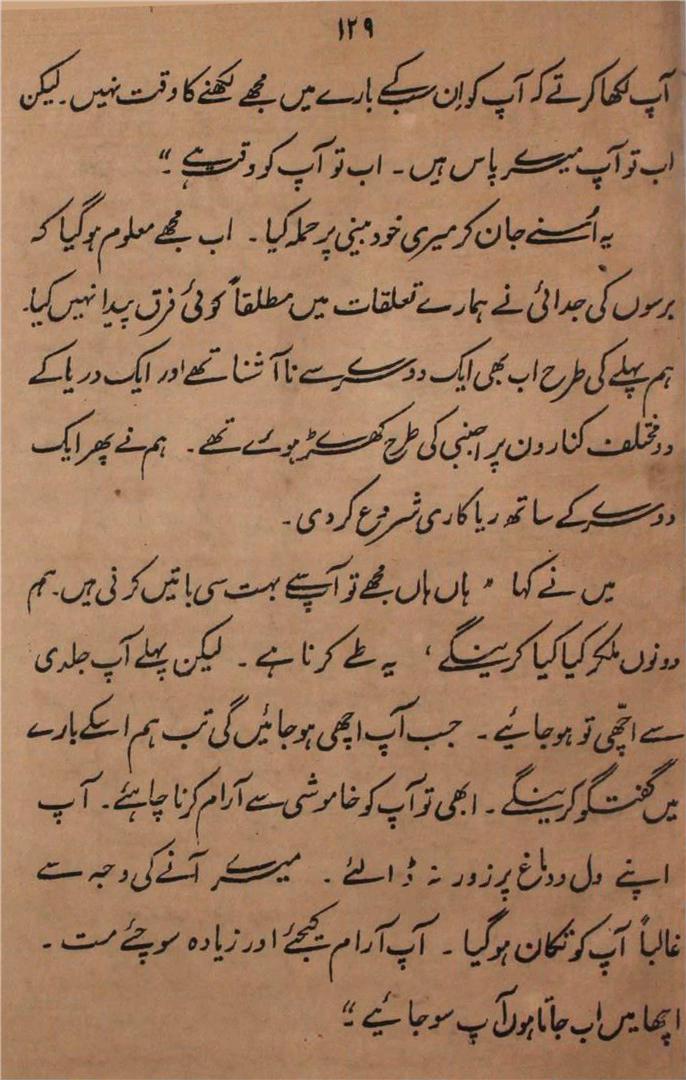 ۱۲۹
آپ لکھا کرتے کہ آپ کو اِن سب کے بارے میں مجھے لکھنے کا وقت نہیں۔ لیکن
اب تو آپ میرے پاس ہیں۔ اب تو آپ کو وقت ہے۔“
یہ اُسنے جان کر میری خود بینی پر حملہ کیا۔ اب مجھے معلوم ہوگیا کہ
برسوں کی جدائی نے ہمارے تعلقات میں مطلقاً کوئی فرق پیدا نہیں کیا۔
ہم پہلے کی طرح اب بھی ایک دوسرے سے ناآشنا تھے اور ایک دریا کے
دو مختلف کنارون پر اجنبی کی طرح کھڑے ہوئے تھے۔ ہم نے پھر ایک
دوسرے کے ساتھ ریاکاری شروع کردی۔
میں نے کہا ”ہاں ہاں مجھے تو آپ سے بہت سی باتیں کرنی ہیں۔ ہم
دونوں ملکر کیا کیا کرینگے، یہ طے کرنا ہے۔ لیکن پہلے آپ جلدی
سے اچھی تو ہوجائیے۔ جب آپ اچھی ہوجائیں گی تب ہم اسکے بارے
میں گفتگو کرینگے۔ ابھی تو آپ کو خاموشی سے آرام کرنا چاہئے۔ آپ
اپنے دل و دماغ پر زور نہ ڈالئے۔ میرے آنے کی وجہ سے
غالباً آپ کو تکان ہوگیا۔ آپ آرام کیجئے اور زیادہ سوچئے مت۔
اچھا میں اب جاتا ہوں آپ سو جائیے۔“